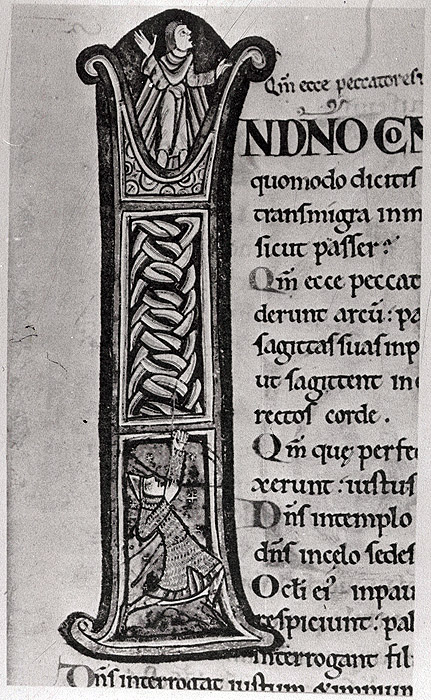 Qm̄ ecce peccatores
NDNO CON
quomodo dicitis
transmigra inm
sicut passer?
Qm̄ ecce peccat
derunt arcū: pa
sagittas suas inp
ut sagittent in
rectos corde.
Qm̄ quę perfe
xerunt: iustus
Dn̄s intemplo
dn̄s incęlo sedes
Ocli ei' inpau
respiciunt: pal
interrogant fil
Dn̄s interrogat iustum & impium